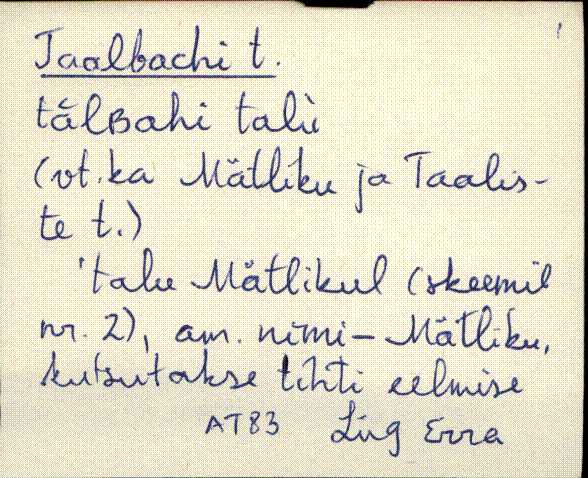 Taalbachi t.
tālʙahi talù
(vt. ka Mätliku ja Taalis-
te t.)
'talu Mätlikul (skeemil
nr. 2), am. nimi – Mätliku,
kutsutakse tihti eelmise
AT83 Lüg Erra